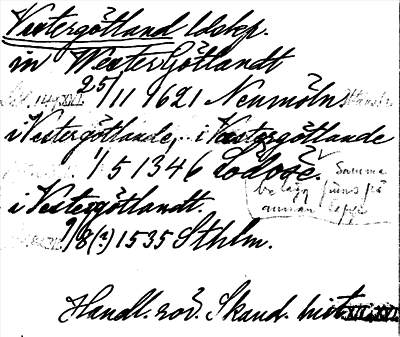 Vestergötland ldskp.
in WesterGötlandt
25/11 1621 Neumöln
i Vestergötlande, i Vestergötlande
1/5 1346 Lödöse. Samma
belägg finns på
annan lapp
i Vestergötlandt.
9/8(?) 1535 Sthlm.
Handl. rör. Skand. hist.